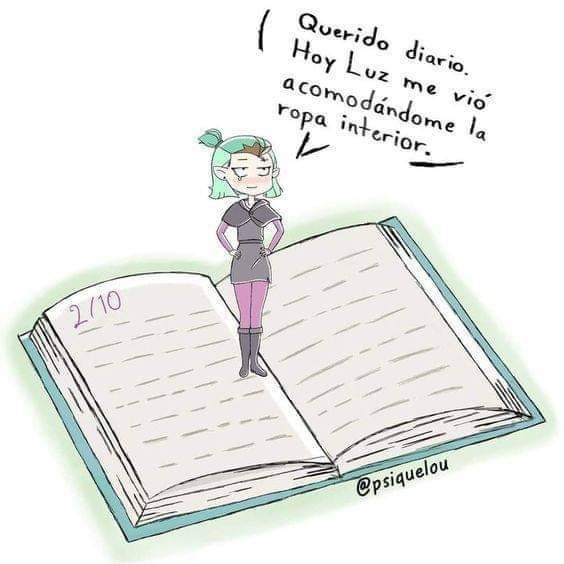 Querido diario.
Hoy Luz me vió
acomodándome la
ropa interior.
2/10
@psiquelou